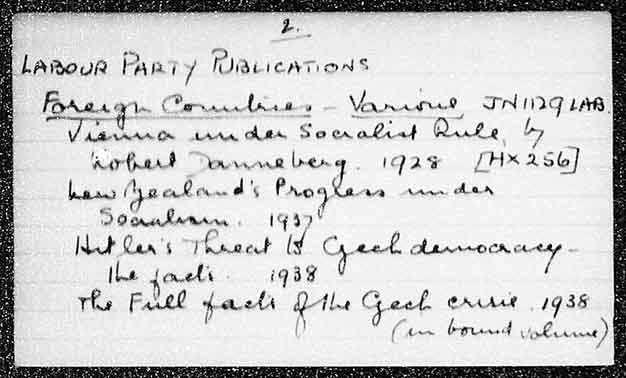 2.
LABOUR PARTY PUBLICATIONS
Foreign Countries - Various JN1129 LAB.
Vienna under Socialist Rule, by
Robert Danneberg. 1928 [HX 256]
New Zealand's Progress under
Socialism. 1937
Hitler's Threat to Czech democracy -
the facts. 1938
The Full facts of the Czech crisis. 1938
(in bound volume)